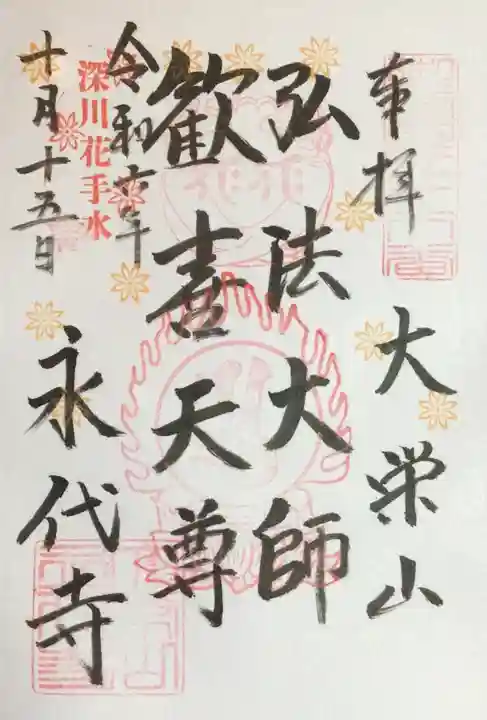 奉拝
大栄山
弘法大師
歓喜天尊
令和六年
深川花手水
十月十五日
永代寺